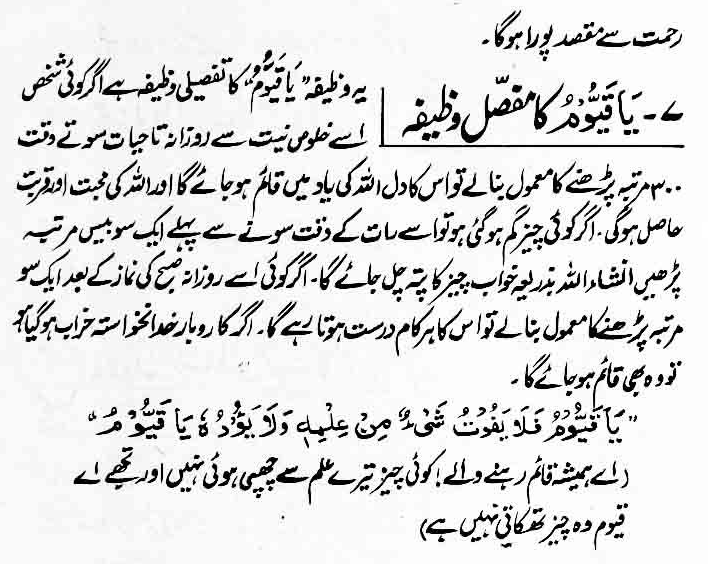 رحمت سے مقصد پورا ہوگا۔
۷۔ يَا قَيُّوْمُ کا مفصّل وظیفہ
یہ وظیفہ ”يَا قَيُّوْمُ“ کا تفصیلی وظیفہ ہے اگر کوئی شخص
اسے خلوص نیت سے روزانہ تاحیات سوتے وقت
۳۰۰ مرتبہ پڑھنے کا معمول بنالے تو اس کا دل اللہ کی یاد میں قائم ہو جائے گا اور اللہ کی محبت اور قربت
حاصل ہوگی۔ اگر کوئی چیز گم ہوگئی ہو تو اسے رات کے وقت سونے سے پہلے ایک سو بیس مرتبہ
پڑھیں انشاء اللہ بذریعہ خواب چیز کا پتہ چل جائے گا۔ اگر کوئی اسے روزانہ صبح کی نماز کے بعد ایک سو
مرتبہ پڑھنے کا معمول بنالے تو اس کا ہر کام درست ہوتا رہے گا۔ اگر کاروبار خدانخواستہ خراب ہوگیا ہو
تو وہ بھی قائم ہو جائے گا۔
”يَا قَيُّوْمُ فَلَا يَفُوْتُ شَيْءٌ مِنْ عِلْمِهٖ وَلَا يَؤُدُهٗ يَا قَيُّوْمُ“
(اے ہمیشہ قائم رہنے والے! کوئی چیز تیرے علم سے چھپی ہوئی نہیں اور تجھے اے
قیوم وہ چیز تھکاتی نہیں ہے)